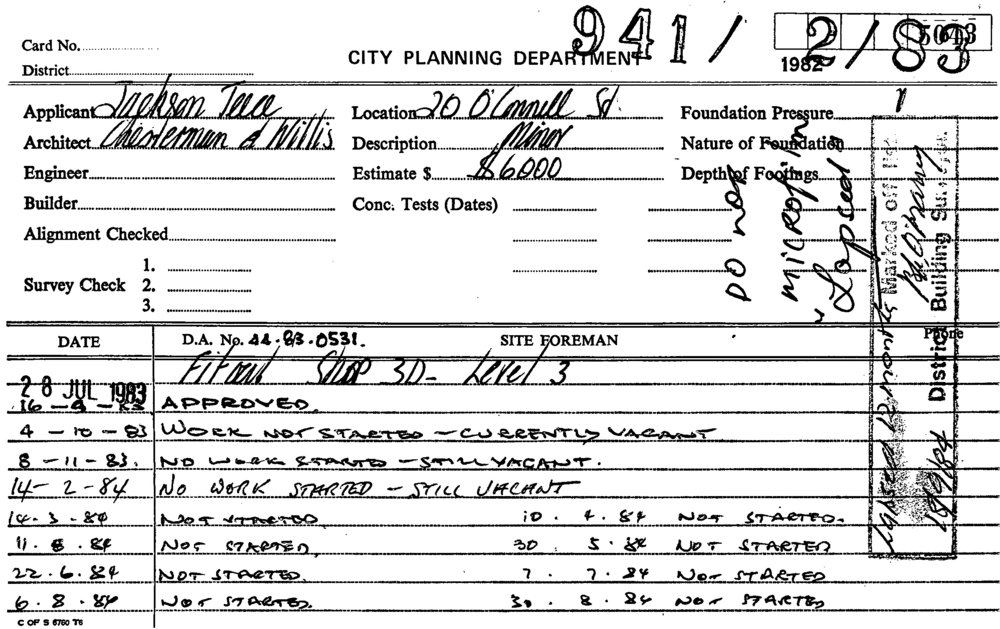 941/2/83
5013
Card No.
CITY PLANNING DEPARTMENT
1982
District
Applicant Jackson Teece Location 20 O'Connell St. Foundation Pressure
Architect Chesterman & Willis Description Minor Nature of Foundation
Engineer Estimate $ $6000 Depth of Footings
Builder Conc. Tests (Dates)
Alignment Checked
1.
Survey Check 2.
3.
DO NOT
MICROFILM
"Lapsed
Marked off
District Building Surveyor
Lapsed 12 months
18/9/84
DATE D.A. No. 44.83.0531. SITE FOREMAN Phone
Fitout Shop 3D- Level 3
28 JUL 1983
16-9-83 APPROVED.
4-10-83 WORK NOT STARTED - CURRENTLY VACANT
8-11-83. NO WORK STARTED - STILL VACANT.
14-2-84 NO WORK STARTED - STILL VACANT
14.3.84 NOT STARTED 10.4.84 NOT STARTED.
11.5.84 NOT STARTED 30.5.84 NOT STARTED
22.6.84 NOT STARTED. 7.7.84 NOT STARTED
6.8.84 NOT STARTED. 30.8.84 NOT STARTED
C OF S 6760 T6